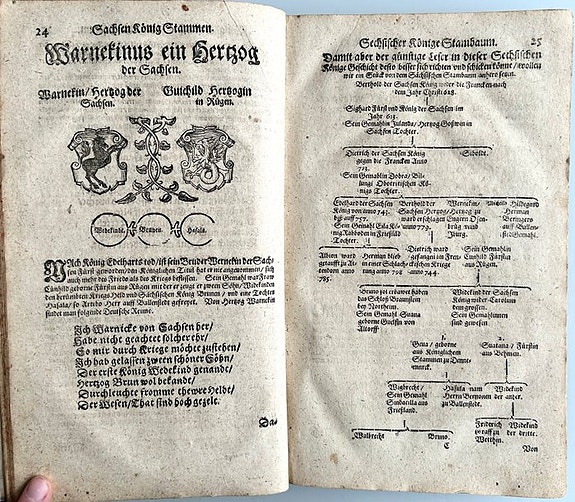 24
Sachsen König Stammen.
Warnekinus ein Hertzog
der Sachsen.
Warnekin/ Hertzog der
Sachsen.
Gutschild Hertzogin
in Rügen.
Wedekindt. Brunon. Hasala.
NAch König Edelharts tod/ist sein Bruder Wernekin der Sach-
sen Fürst geworden/das Königlichen Titul hat er nie angenommen/ sich
auch mehr des Frieds als des Kriegs beflissen. Sein Gemahl war Fraw
Cunhild geborne Fürstin aus Rügen mit der er zeuget er zween Söhn/ Widekinden
den berühmten Kriegs Held und Sächsischen König Brunen/ und eine Tochter
Hasala/ so Arnds Herr auff Ballenstedt gefreyet. Von Hertzog Warnekin
findet man folgende Deutsche Reime.
Ich Warnicke von Sachsen her/
Habe nicht geachtet solcher ehr/
So mir durch Kriege möchte zustehen/
Ich hab gelassen zween schöner Söhn/
Der erste König Wedekind genandt/
Hertzog Brun wol bekandt/
Durchleuchte fromme thewre Helde/
Der Wesen/ That sind hoch gezelt.
Da-
Sechsischer Könige Stambaum. 25
Damit aber der günstige Leser in dieser Sechsischen
Könige Geschicht desto besser sich richten und schicken könne/ wollen
wir ein Stück von dem Sächsischen Stambaum anhero setzen.
Berthold der Sachsen König wider die Francken nach
dem Jahr Christi 628.
Sighard Fürst und König der Sachsen im
Jahr 633.
Sein Gemahlin Julanda/ Hertzog Goßwin in
Sachsen Tochter.
Dietrich der Sachsen König
gegen die Francken Anno
723.
Sein Gemahlin Dobra/ Bil-
lungs Obotritischen Kö-
nigs Tochter.
Siboldt.
Edelhard der Sachsen
König von anno 745.
biß auff 757.
Tochter.
Berthold der
Sachsen Hertzog
Wernekin/
Hertzog zu
Engern
Hildegard
Herman
Albion ward
Herman blieb
Dietrich ward
gefangen im Fran-
ckischen Kriege
anno 744.
Sein Gemahlin
Fürstin
aus Rügen.
785.
Bruno zoi erbawet haben
das Schloß Braunstein
bey Northeim.
Sein Gemahl Suana
geborne Gräffin von
Altorff
Widekind der Sachsen
König unter Carolum
dem grossen.
Sein Gemahlinnen
sind gewesen
1.
Geva/ geborne
aus Königlichem
Stammen zu Denne-
marck.
2.
Suatana/ Fürstin
aus Behmen.
Wigbrecht/
Sein Gemahl
Sindacilla aus
Frießland.
Hasala nam
Herrn
zu Ballenstedt.
Widekind
der ander.
Walbrecht
Bruno.
Fridrich
Widekind
der dritte.
C
Von